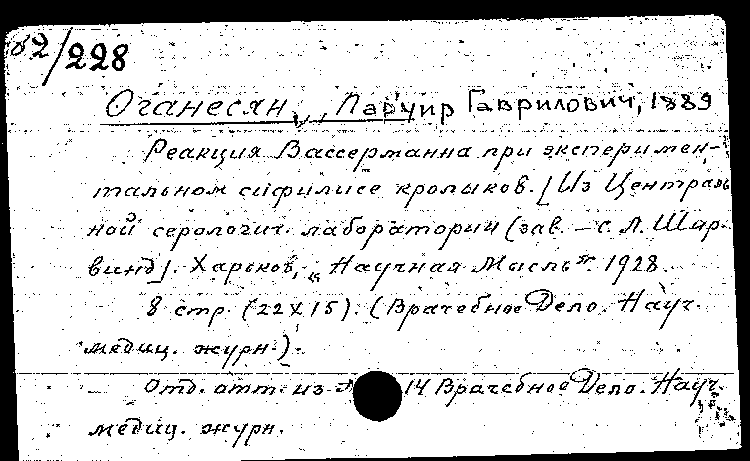 82/228
Оганесян, Паруир Гаврилович, 1889
Реакция Вассерманна при эксперимен-
тальном сифилисе кроликов. [Из Централь
ной серологич. лаборатории (зав. — С. Л. Шир-
винд]. Харьков, „Научная Мысль". 1928.
8 стр. (22х15). (Врачебное Дело. Науч.
медиц. журн.).
Отд. отт. из 14 Врачебное Дело. Науч.
медиц. журн.